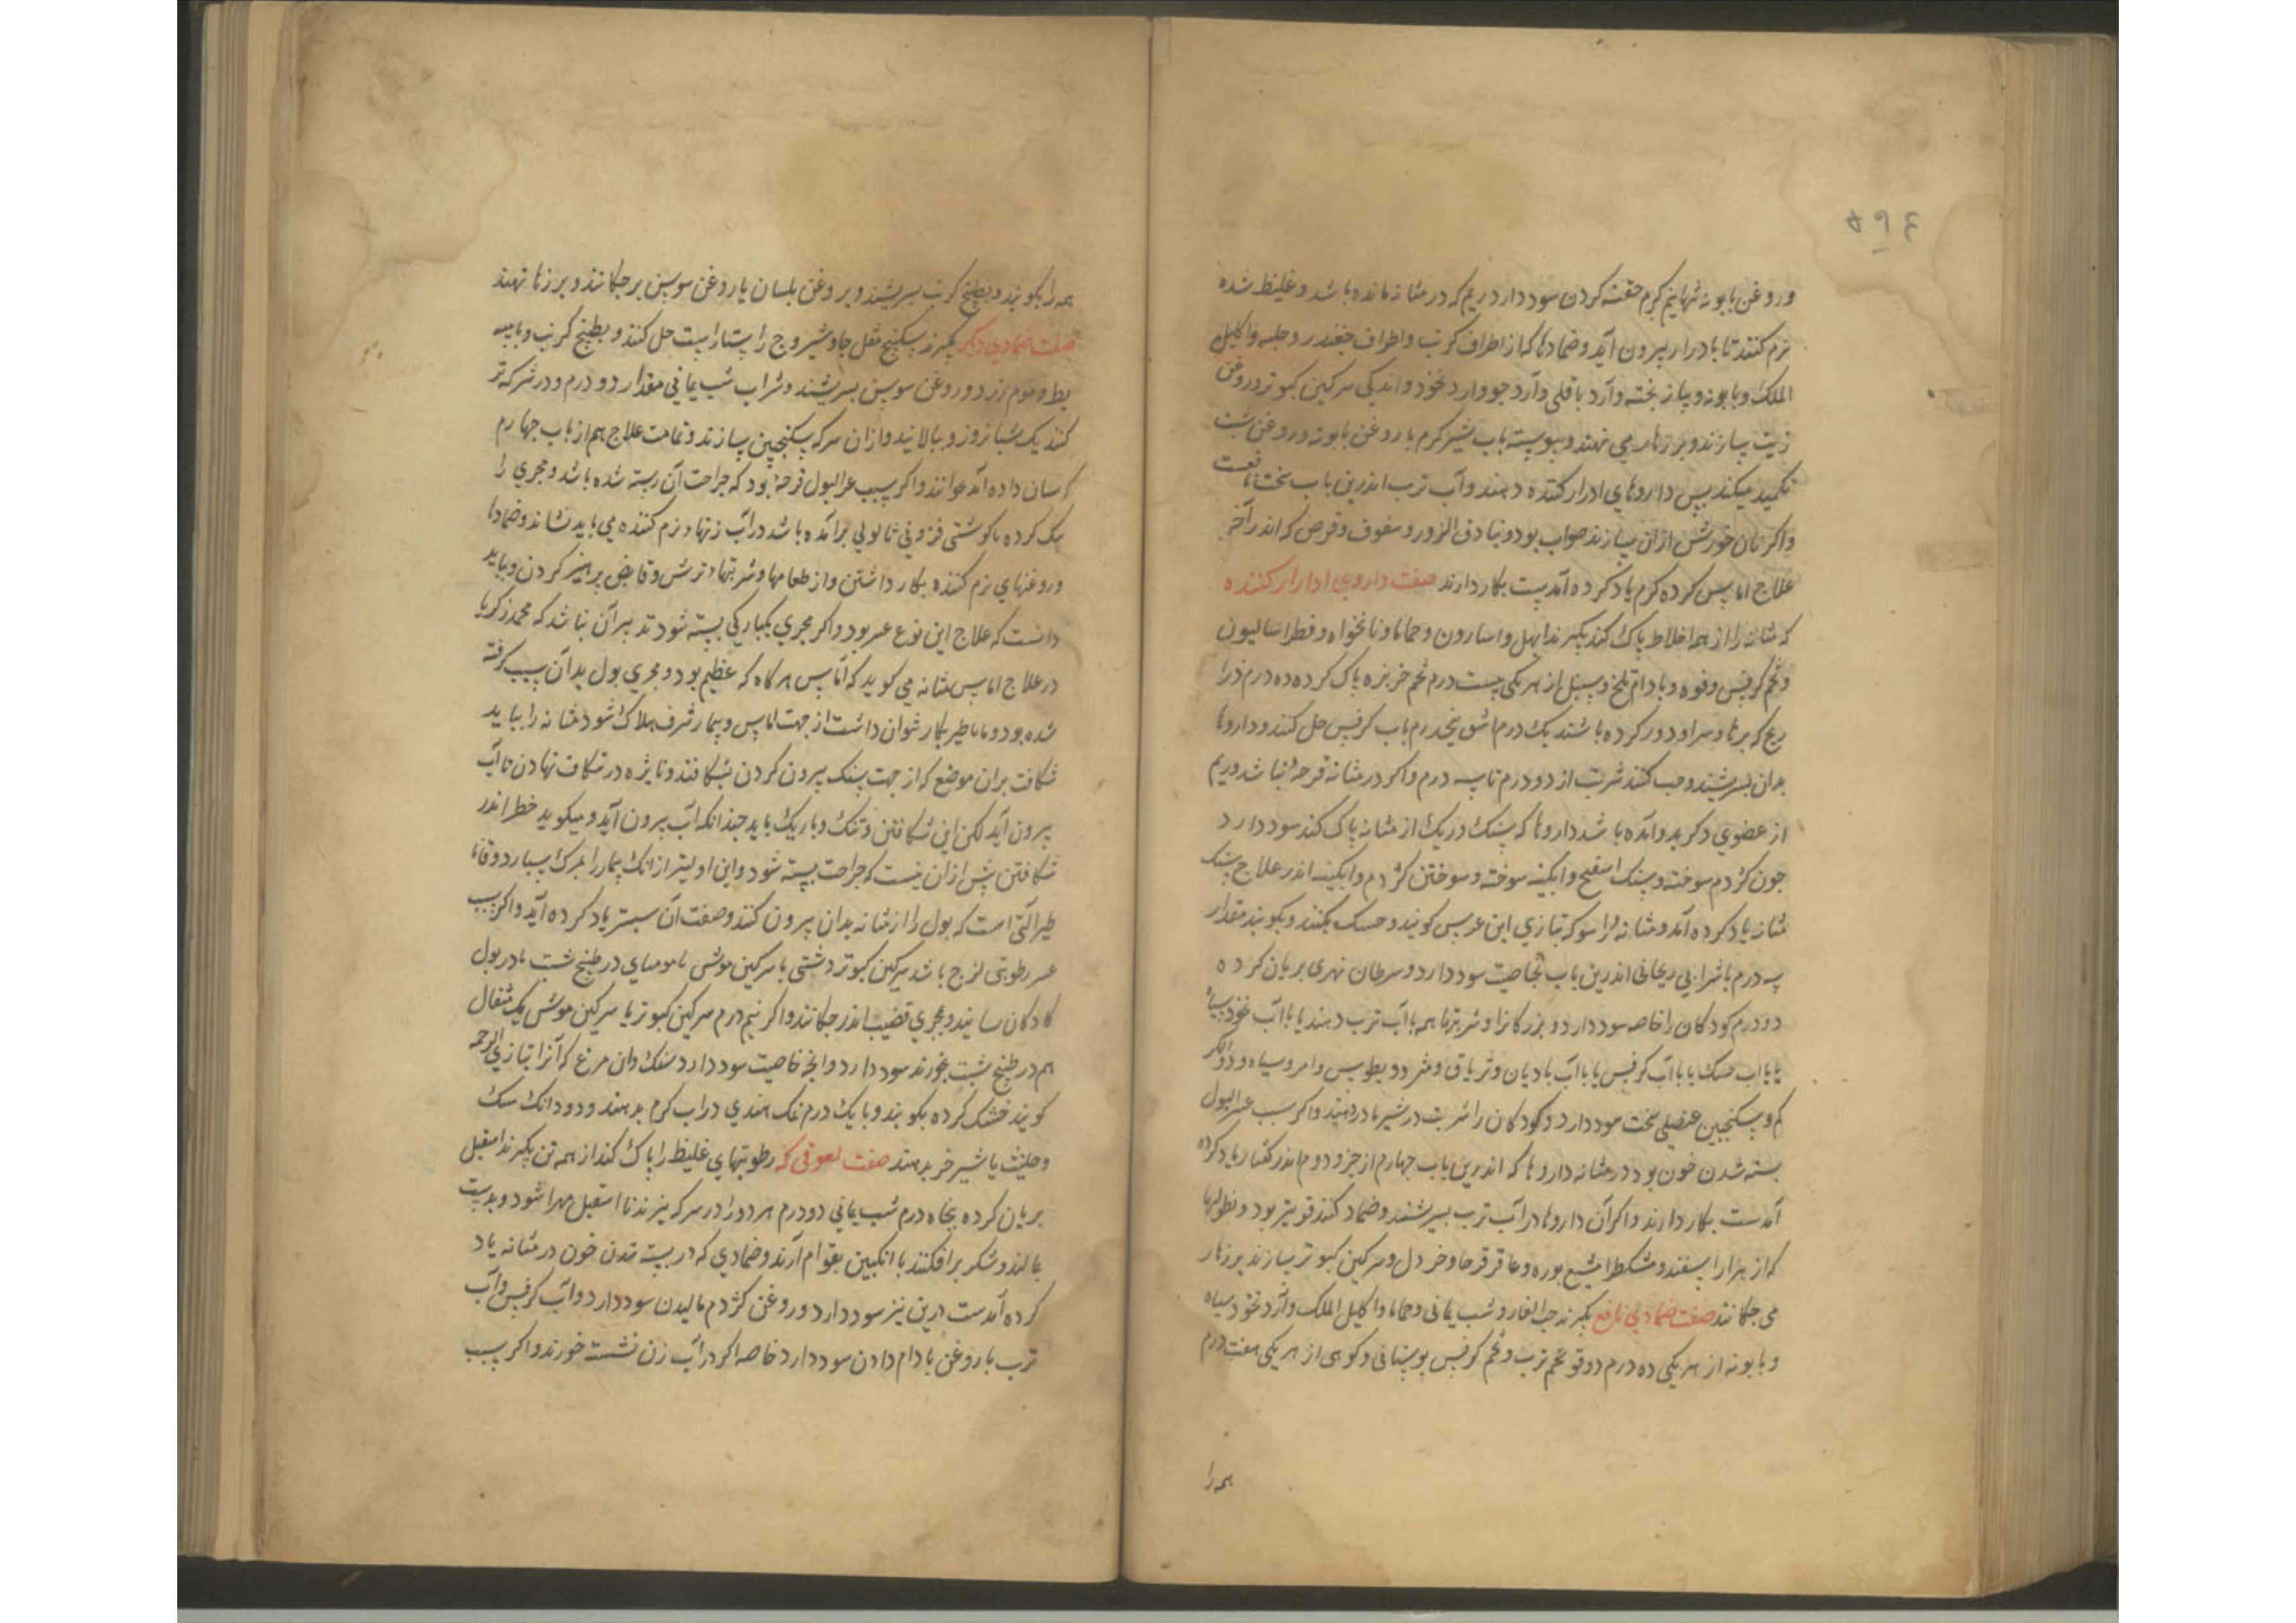 ۵۹۴
و روغن بابونه تنها نیم کرم حقنه کردن سود دارد ریم که در مثانه مانده باشد و غلیظ شده
نرم کنند تا بادرار بیرون آید و ضمادها که از اطراف کرنب و اطراف چغندر و حلبه و اکلیل
الملک و بابونه و پیاز پخته و آرد باقلی و آرد جو و ارد نخود و اندکی سرکین کبوتر و روغن
زیت بسازند و بر زهار می نهند و پیوسته باب شیر کرم با روغن بابونه و روغن شبت
تکمید میکند پس داروهای ادرار کننده دهند و آب ترب اندرین باب سخت نافعست
واکر نان خورش از ان سازند صواب بود و بنادق البزور و سفوف و قرص که اندر آخر
علاج اماس کرده کرم یاد کرده آمدست بکار دارند صفت داروی ادرار کننده
که مثانه را از همه اخلاط پاک کند بکیرند ابهل و اسارون و حماما و نانخواه و فطراسالیون
و تخم کرفس و فوه و بادام تلخ و سنبل از هر یکی بیست درم تخم خربزه پاک کرده ده درم ذرا
ریح که پرها و سر او دور کرده باشند یک درم اشق پنجدرم باب کرفس حل کنند و داروها
بدان بسرشند و حب کنند شربت از دو درم تا سه درم واکر در مثانه قرحه نباشد و ریم
از عضوی دکر بدو آمده باشد داروها که سنک و ریک از مثانه پاک کند سود دارد
جون کژدم سوخته و سنک اسفنج و ابکینه سوخته و سوختن کژدم و ابکینه اندر علاج سنک
مثانه یاد کرده آمد و مثانه راسو که بتازی ابن عرس کویند و خشک بکنند و بکوبند مقدار
سه درم با شرابی ریحانی اندرین باب بخاصیت سود دارد و سرطان نهری بریان کرده
دو درم کودکان را خاصه سود دارد و بزرکانرا و شربتها همه با آب ترب دهند یا با آب نخود سیاه
یا باب خسک یا با آب کرفس یا با آب بادیان و تریاق و مثرودیطوس و امروسیاه و دواالکر
کم و سکنجبین عنصلی سخت سود دارد و کودکان را شربت در شیر مادر دهند واکر سبب عسرالبول
بسته شدن خون بود در مثانه داروها که اندرین باب چهارم از جزو دوم اندر کفتار یاد کرده
آمدست بکار دارند واکر آن داروها در آب ترب بسرشند و ضماد کنند قویتر بود و نطولها
که از هزار اسفند و مشکطرامشیع بوره و عاقرقرحا و خردل و سرکین کبوتر سازند بر زهار
می چکانند صفت ضمادی نافع بکیرند حب الغار و شب یمانی و حماما و اکلیل الملک و آرد نخود سیاه
و بابونه از هر یکی ده درم دوقو تخم ترب و تخم کرفس بوستانی و کوهی از هر یکی هفت درم
همه را
همه را بکوبند و بطبخ کرنب بسرشند و بر روغن بلسان یا روغن سوسن برچکانند و بر زهار نهند
صفت ضمادی دیکر بکیرند سکبینج مقل جاوشیر وج راستاراست حل کنند و بطبخ کرنب و با پیه
بط و موم زرد و روغن سوسن بسرشند و شراب شب یمانی مقدار دو درم و در سرکه تر
کنند یک شبانروز و ببالایند و از ان سرکه سکنجبین بسازند و تمامت علاج هم از باب چهارم
کسان داده آمد بدانند واکر سبب عسرالبول قرحه بود که جراحت آن رسته شده باشد و مجری را
تنک کرده یا کوشتی فزونی ثالولی برآمده باشد در آب زنها و نرم کننده می باید نشاند و ضمادها
و روغنهای نرم کننده بکار داشتن و از طعامها و شربتهاء ترش و قابض پرهیز کردن و بباید
دانست که علاج این نوع عسر بود واکر مجری بیکبارکی بسته شود تدبیر آن نباشد که محمد زکریا
در علاج اماس مثانه می کوید که آماس هرکاه که عظیم بود و مجری بول بدان سبب کرفته
شده بود و قاثاطیر بکار نتوان داشت از جهت اماس و بیمار مشرف هلاک شود مثانه را بباید
شکافت بران موضع که از جهت سنک بیرون کردن بشکافند و نایژه در شکاف نهادن تا آب
بیرون آید لکن این شکافتن و تنک و باریک باید چندانکه آب بیرون آید و میکوید خطر اندر
شکافتن بیش از ان نیست که جراحت بسته شود و این اولیتر از انک بیمار را بمرک سپارد و قاثا
طیر آلتی است که بول را از مثانه بدان بیرون کنند و صفت آن سپستر یاد کرده آید واکر سبب
عسر رطوبتی لزج باشد سرکین کبوتر دشتی یا سرکین موش یا مومیای در طبخ شبت یا در بول
کودکان سایند و بمجری قضیب اندر چکانند واکر نیم درم سرکین کبوتر یا سرکین موش یک مثقال
هم در طبخ شبت بخورند سود دارد و انچه خاصیت سود دارد سنک دان مرغ که آنرا بتازی
کویند خشک کرده بکوبند و با یک درم نمک هندی در اب کرم بدهند و دو دانک سک
و حلتیث با شیر خر بدهند صفت لعوقی که رطوبتهای غلیظ را پاک کند از همه تن بکیرند اسقیل
بریان کرده پنجاه درم شب یمانی دو درم هر دو را در سرکه بپزند تا اسقیل مهرا شود و بدست
بمالند و شکر برافکنند با انکبین بقوام آرند و ضمادی که در بسته شدن خون در مثانه یاد
کرده آمدست درین نیز سود دارد و روغن کژدم مالیدن سود دارد و آب کرفس و آب
ترب با روغن بادام دادن سود دارد خاصه اکر در آب زن نشسته خورند واکر سبب